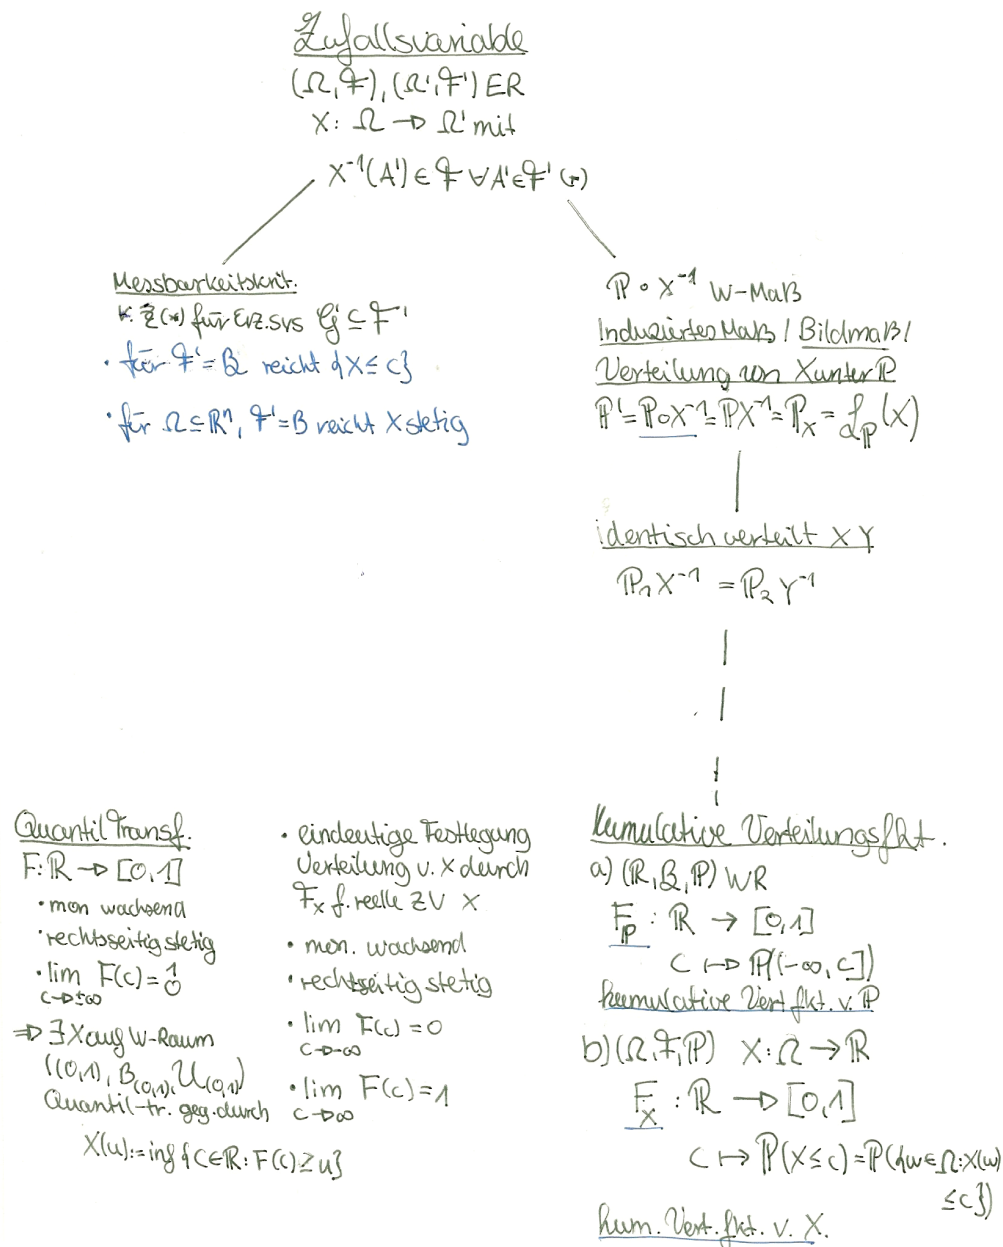 Zufallsvariable
(Ω,𝓕), (Ω',𝓕') ER
X: Ω → Ω' mit
X⁻¹(A') ∈ 𝓕 ∀ A' ∈ 𝓕' (*)
Messbarkeitskrit.
z.z (*) für Erz.sys 𝒢' ⊆ 𝓕'
• für 𝓕' = B reicht {X ≤ c}
• für Ω ⊆ ℝⁿ, 𝓕' = B reicht X stetig
ℙ ∘ X⁻¹ W-Maß
Induziertes Maß / Bildmaß /
Verteilung von X unter ℙ
ℙ' = ℙ∘X⁻¹ = ℙX⁻¹ = ℙ_X = 𝓛_ℙ(X)
identisch verteilt X Y
ℙ₁X⁻¹ = ℙ₂Y⁻¹
Quantil Transf.
F: ℝ → [0,1]
• mon wachsend
• rechtsseitig stetig
• lim F(c) = 1 0
c→±∞
⇒ ∃ X auf W-Raum
((0,1), B_(0,1), U_(0,1))
Quantil-tr. geg. durch
X(u) := inf {c ∈ ℝ: F(c) ≥ u}
• eindeutige Festlegung
Verteilung v. X durch
F_X f. reelle ZV X
• mon. wachsend
• rechtsseitig stetig
• lim F(c) = 0
c→-∞
• lim F(c) = 1
c→∞
Kumulative Verteilungsfkt.
a) (ℝ, B, ℙ) WR
F_ℙ : ℝ → [0,1]
c ↦ ℙ((-∞, c])
kumulative Vert.fkt. v. ℙ
b) (Ω, 𝓕, ℙ) X: Ω → ℝ
F_X : ℝ → [0,1]
c ↦ ℙ(X ≤ c) = ℙ({ω ∈ Ω: X(ω)
≤ c})
kum. Vert.fkt. v. X.